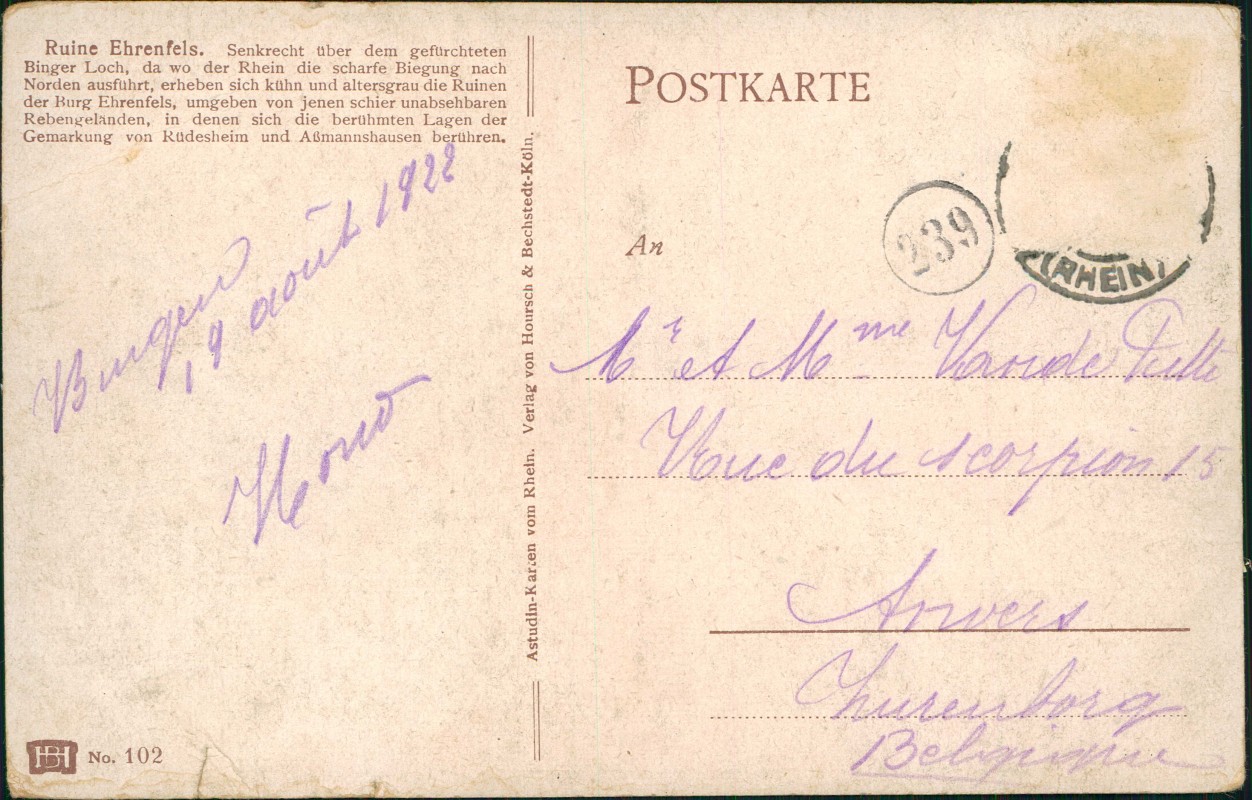 Ruine Ehrenfels. Senkrecht über dem gefürchteten
Binger Loch, da wo der Rhein die scharfe Biegung nach
Norden ausführt, erheben sich kühn und altersgrau die Ruinen
der Burg Ehrenfels, umgeben von jenen schier unabsehbaren
Rebengeländen, in denen sich die berühmten Lagen der
Gemarkung von Rüdesheim und Aßmannshausen berühren.
Bingen
19 août 1922
Astudin-Karten vom Rhein. Verlag von Hoursch & Bechstedt-Köln.
HB No. 102
POSTKARTE
239
(RHEIN)
An
Mr et Mme Vande
Rue du scorpion 15
Anvers
Zurenborg
Belgique